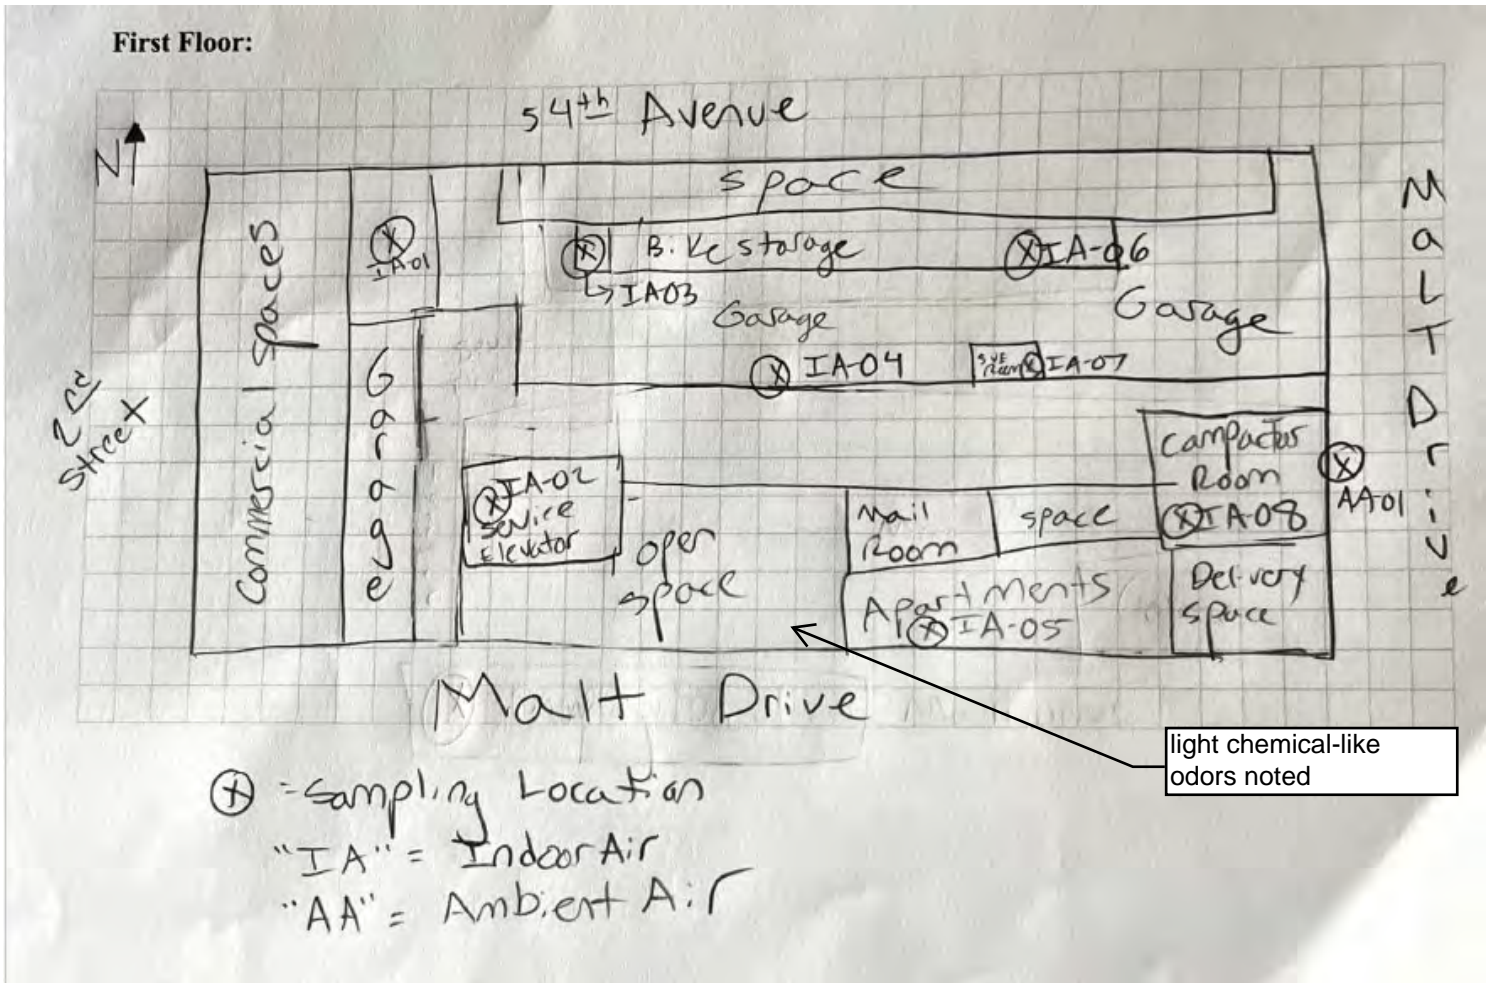 First Floor:
54th Avenue
N
space
Commercial spaces
IA-01
Bike storage
IA-06
IA03
Garage
Garage
IA-04
IA-07
Room
2nd
Street
Garage
Malt Drive
IA-02
Service
Elevator
open
space
Mail
Room
space
Compactor
Room
IA-08
AA-01
Apartments
IA-05
Delivery
space
Malt Drive
light chemical-like
odors noted
X = Sampling Location
"IA" = Indoor Air
"AA" = Ambient Air